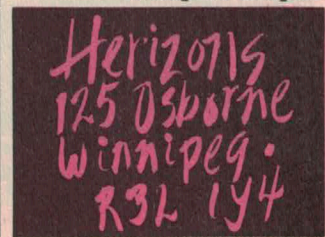 Herizons
125 Osborne
Winnipeg.
R3L 1Y4